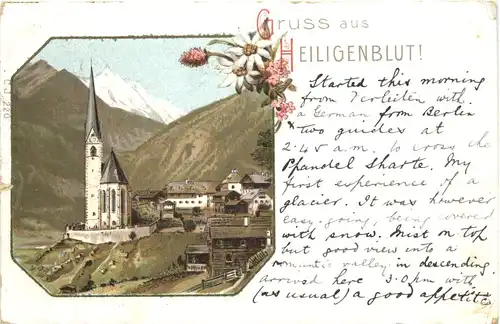 Gruss aus
Heiligenblut!
Started this morning
from Ferleiten with
a German from Berlin
& two guides at
2.45 a.m. to cross the
Pfandel Sharte. My
first experience of a
glacier. It was however
easy-going, being covered
with snow. Mist on top
but good view into a
romantic valley in descending
arrived here 3.0 p.m with
(as usual) a good appetite